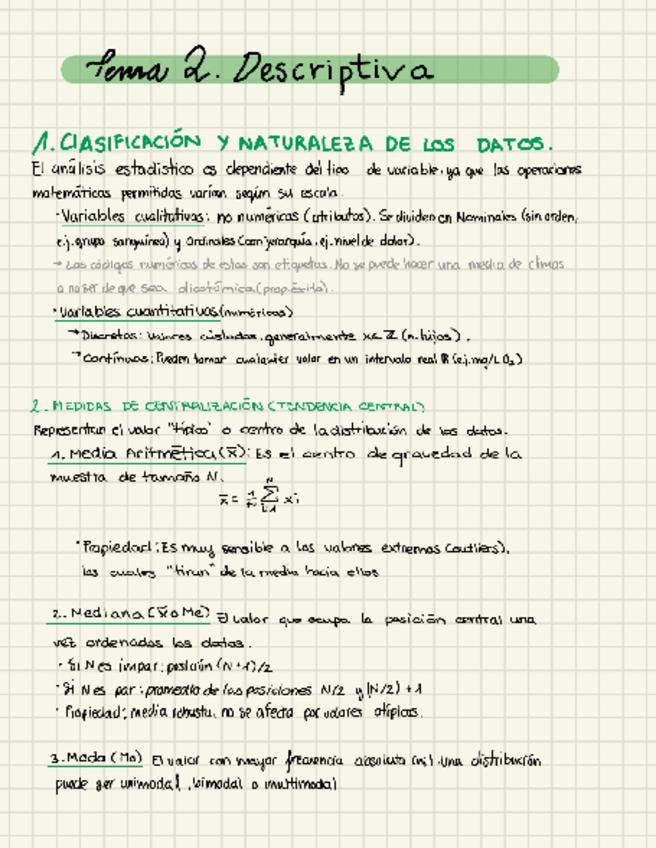 Tema 2. Descriptiva
1. ClASIFICACIÓN Y NATURALEZA DE LOS DATOS.
El análisis estadístico es dependiente del tipo de variable, ya que las operaciones
matemáticas permitidas varían según su escala.
· Variables cualitativas: no numéricas (atributos). Se dividen en Nominales (sin orden,
ej. grupo sanguíneo) y Ordinales (con jerarquía, ej. nivel de dolor).
→ Los códigos numéricos de estas son etiquetas. No se puede hacer una media de
a no ser de que sea dicotómica (proporción).
· Variables cuantitativas (numéricas)
→ Discretas: Valores aislados, generalmente x∈Z (n. hijos).
→ Continuas: Pueden tomar cualquier valor en un intervalo real R (ej. mg/L O₂)
2. MEDIDAS DE CENTRALIZACIÓN (TENDENCIA CENTRAL)
Representan el valor "típico" o centro de la distribución de los datos.
1. Media Aritmética (x̄): Es el centro de gravedad de la
muestra de tamaño N.
x̄ = 1/N ∑ᵢ₌₁ᴺ xi
· Propiedad: Es muy sensible a los valores extremos (outliers),
los cuales "tiran" de la media hacia ellos
2. Mediana (x̃ o Me) El valor que ocupa la posición central una
vez ordenados los datos.
· Si N es impar: posición (N+1)/2
· Si N es par: promedio de las posiciones N/2 y (N/2)+1
· Propiedad: media robusta, no se afecta por valores atípicos.
3. Moda (Mo) El valor con mayor frecuencia absoluta (ni). Una distribución
puede ser unimodal, bimodal o multimodal